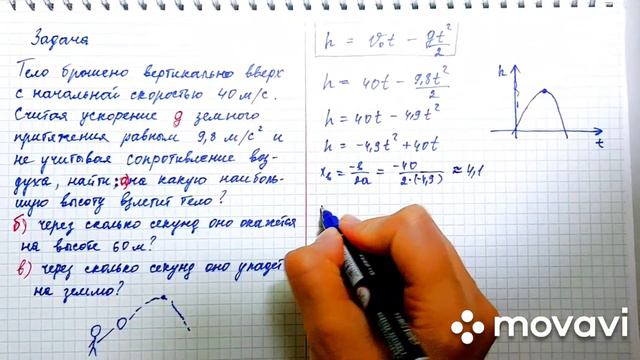 Задача
Тело брошено вертикально вверх
с начальной скоростью 40 м/с.
Считая ускорение g земного
притяжения равным 9,8 м/с² и
не учитывая сопротивление воз-
духа, найти: а) на какую наиболь-
шую высоту взлетит тело?
б) через сколько секунд оно окажется
на высоте 60 м?
в) через сколько секунд оно упадет
на землю?
h = v₀t - gt²/2
h = 40t - 9,8t²/2
h = 40t - 4,9t²
h = -4,9t² + 40t
xв = -в/2а = -40/2·(-4,9) ≈ 4,1
h
t
movavi